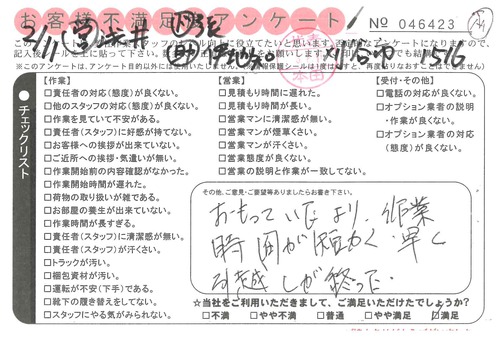 お客様不満足アンケート！
No 046423
1516
※このアンケートは、アンケート目的以外には使用いたしません。
チェックリスト
【作業】
□責任者の対応(態度)が良くない。
□他のスタッフの対応(態度)が良くない。
□作業を見ていて不安がある。
□責任者(スタッフ)に好感が持てない。
□お客様への挨拶が出来ていない。
□ご近所への挨拶・気遣いが無い。
□作業開始前の内容確認がなかった。
□作業開始時間が遅れた。
□荷物の取り扱いが雑である。
□お部屋の養生が出来ていない。
□作業時間が長すぎる。
□責任者(スタッフ)に清潔感が無い。
□責任者(スタッフ)が汗くさい。
□トラックが汚い。
□梱包資材が汚い。
□運転が不安(下手)である。
□靴下の履き替えをしてない。
□スタッフにやる気がみられない。
【営業】
□見積もり時間に遅れた。
□見積もり時間が長い。
□営業マンに清潔感が無い。
□営業マンが煙草くさい。
□営業マンが汗くさい。
□営業態度が良くない。
□営業の説明と作業が一致してない。
【受付・その他】
□電話の対応が良くない。
□オプション業者の説明
・作業が良くない。
□オプション業者の対応
(態度)が良くない。
その他、ご意見・ご要望等ありましたらお書き下さい。
おもっていたより、作業
時間が短かく 早く
引越しが終った。
☆当社をご利用いただきまして、ご満足いただけたでしょうか？
□不満 □やや不満 □普通 □やや満足 ☑満足